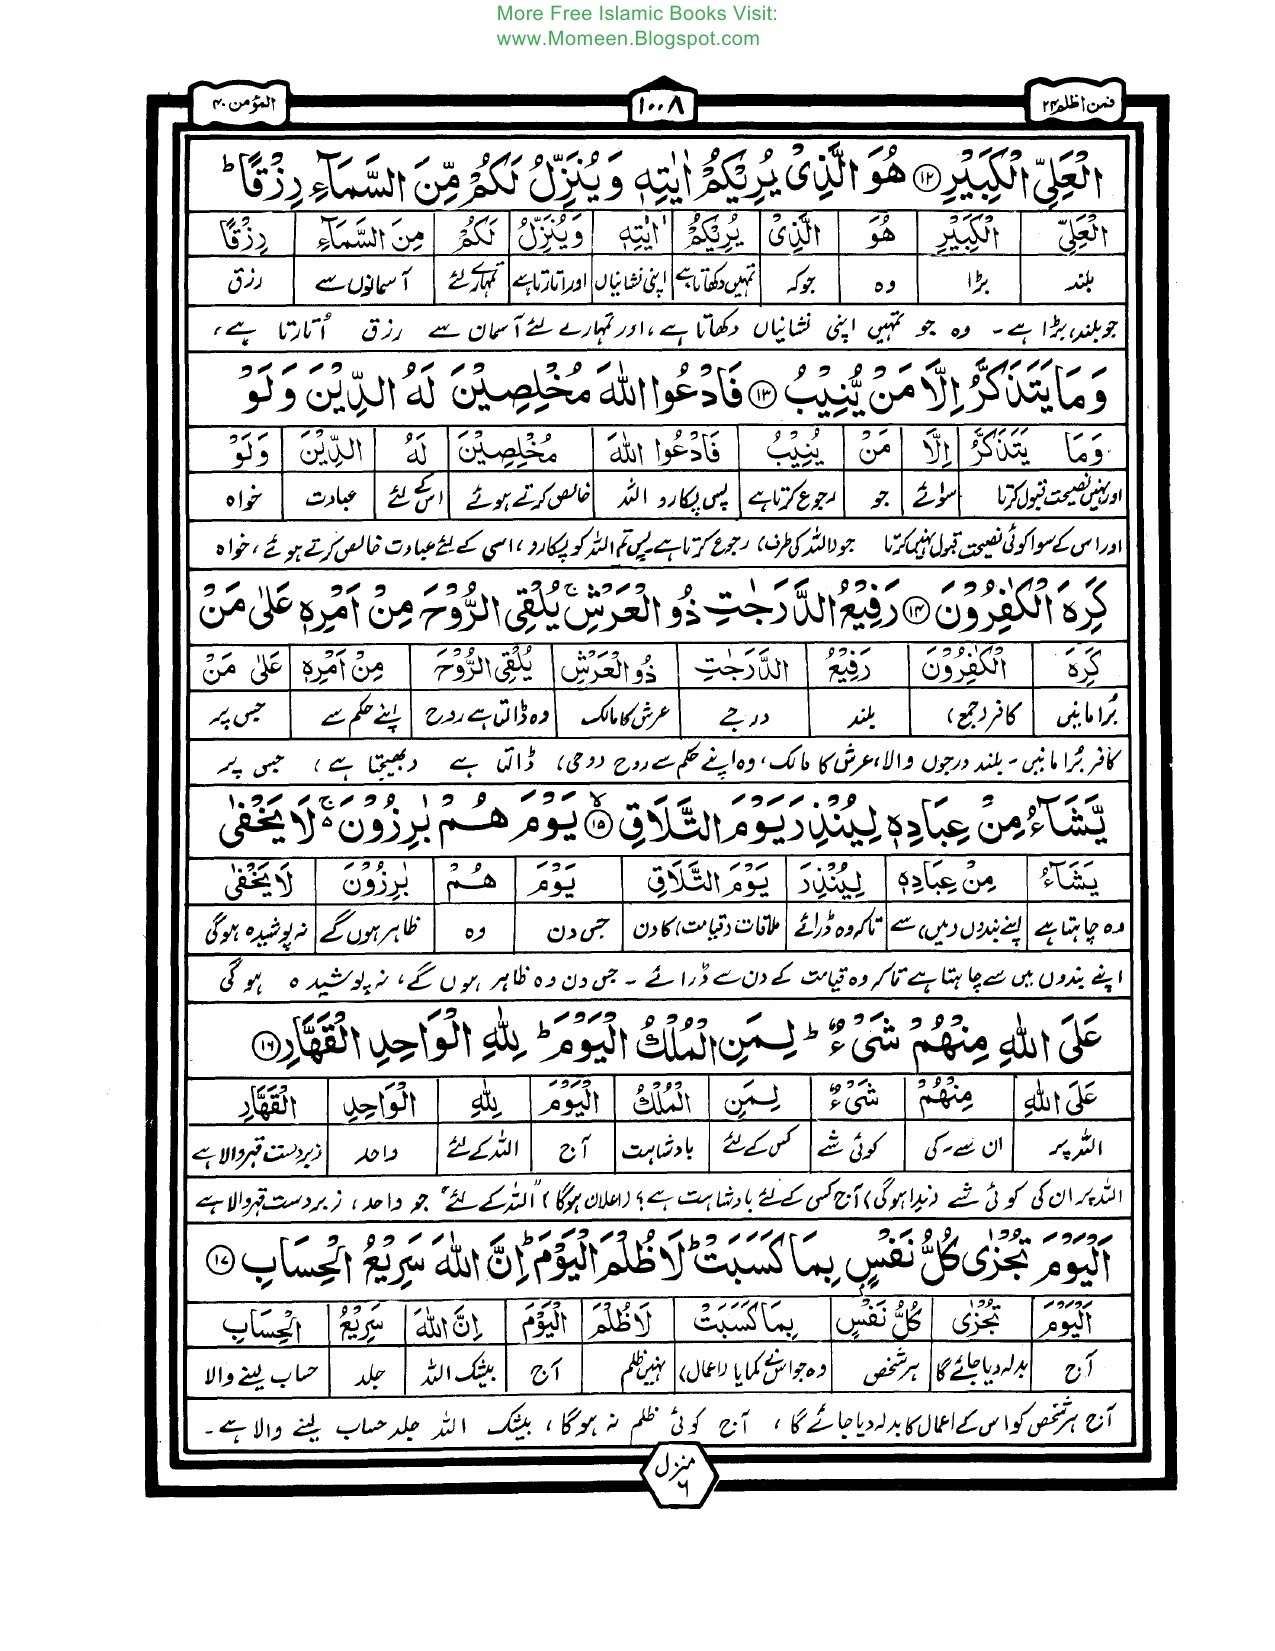 More Free Islamic Books Visit:
www.Momeen.Blogspot.com
فمن اظلم ۲۴ ۱۰۰۸ المؤمن ۴۰
الْعَلِيِّ الْكَبِيْرِ ۝۱۲ هُوَ الَّذِيْ يُرِيْكُمْ اٰيٰتِهٖ وَيُنَزِّلُ لَكُمْ مِّنَ السَّمَآءِ رِزْقًا ؕ
الْعَلِيِّ الْكَبِيْرِ هُوَ الَّذِيْ يُرِيْكُمْ اٰيٰتِهٖ وَيُنَزِّلُ لَكُمْ مِنَ السَّمَآءِ رِزْقًا
بلند بڑا وہ جوکہ تمہیں دکھاتا ہے اپنی نشانیاں اور اتارتا ہے تمہارے لئے آسمانوں سے رزق
جو بلند، بڑا ہے۔ وہ جو تمہیں اپنی نشانیاں دکھاتا ہے، اور تمہارے لئے آسمان سے رزق اُتارتا ہے،
وَمَا يَتَذَكَّرُ اِلَّا مَنْ يُّنِيْبُ ۝۱۳ فَادْعُوا اللّٰهَ مُخْلِصِيْنَ لَهُ الدِّيْنَ وَلَوْ
وَمَا يَتَذَكَّرُ اِلَّا مَنْ يُنِيْبُ فَادْعُوا اللّٰهَ مُخْلِصِيْنَ لَهُ الدِّيْنَ وَلَوْ
اور نہیں نصیحت قبول کرتا سوائے جو رجوع کرتا ہے پس پکارو اللہ خالص کرتے ہوئے اس کے لئے عبادت خواہ
اور اس کے سوا کوئی نصیحت قبول نہیں کرتا جو (اللہ کی طرف) رجوع کرتا ہے پس تم اللہ کو پکارو، اسی کے لئے عبادت خالص کرتے ہوئے، خواہ
كَرِهَ الْكٰفِرُوْنَ ۝۱۴ رَفِيْعُ الدَّرَجٰتِ ذُو الْعَرْشِ ۚ يُلْقِى الرُّوْحَ مِنْ اَمْرِهٖ عَلٰى مَنْ
كَرِهَ الْكٰفِرُوْنَ رَفِيْعُ الدَّرَجٰتِ ذُو الْعَرْشِ يُلْقِى الرُّوْحَ مِنْ اَمْرِهٖ عَلٰى مَنْ
بُرا مانیں کافر (جمع) بلند درجے عرش کا مالک وہ ڈالتا ہے روح اپنے حکم سے جس پر
کافر بُرا مانیں۔ بلند درجوں والا، عرش کا مالک، وہ اپنے حکم سے روح (وحی) ڈالتا ہے (بھیجتا ہے) جس پر
يَّشَآءُ مِنْ عِبَادِهٖ لِيُنْذِرَ يَوْمَ التَّلَاقِ ۝۱۵ يَوْمَ هُمْ بٰرِزُوْنَ ۚ لَا يَخْفٰى
يَشَآءُ مِنْ عِبَادِهٖ لِيُنْذِرَ يَوْمَ التَّلَاقِ يَوْمَ هُمْ بٰرِزُوْنَ لَا يَخْفٰى
وہ چاہتا ہے اپنے بندوں (میں) سے تاکہ وہ ڈرائے ملاقات (قیامت) کا دن جس دن وہ ظاہر ہوں گے نہ پوشیدہ ہوگی
اپنے بندوں میں سے چاہتا ہے تاکہ وہ قیامت کے دن سے ڈرائے۔ جس دن وہ ظاہر ہوں گے، نہ پوشیدہ ہوگی
عَلَى اللّٰهِ مِنْهُمْ شَيْءٌ ؕ لِمَنِ الْمُلْكُ الْيَوْمَ ؕ لِلّٰهِ الْوَاحِدِ الْقَهَّارِ ۝۱۶
عَلَى اللّٰهِ مِنْهُمْ شَيْءٌ لِمَنِ الْمُلْكُ الْيَوْمَ لِلّٰهِ الْوَاحِدِ الْقَهَّارِ
اللہ پر ان سے۔کی کوئی شے کس کے لئے بادشاہت آج اللہ کے لئے واحد زبردست قہر والا ہے
اللہ پر ان کی کوئی شے (نہ ہوگی) آج کس کے لئے بادشاہت ہے؟ (اعلان ہوگا) "اللہ کے لئے" جو واحد، زبردست قہر والا ہے
اَلْيَوْمَ تُجْزٰى كُلُّ نَفْسٍۭ بِمَا كَسَبَتْ ؕ لَا ظُلْمَ الْيَوْمَ ؕ اِنَّ اللّٰهَ سَرِيْعُ الْحِسَابِ ۝۱۷
اَلْيَوْمَ تُجْزٰى كُلُّ نَفْسٍ بِمَا كَسَبَتْ لَا ظُلْمَ الْيَوْمَ اِنَّ اللّٰهَ سَرِيْعُ الْحِسَابِ
آج بدلہ دیا جائے گا ہر شخص وہ جو اس نے کمایا (اعمال) نہیں ظلم آج بیشک اللہ جلد حساب لینے والا
آج ہر شخص کو اس کے اعمال کا بدلہ دیا جائے گا، آج کوئی ظلم نہ ہوگا، بیشک اللہ جلد حساب لینے والا ہے۔
منزل ۶